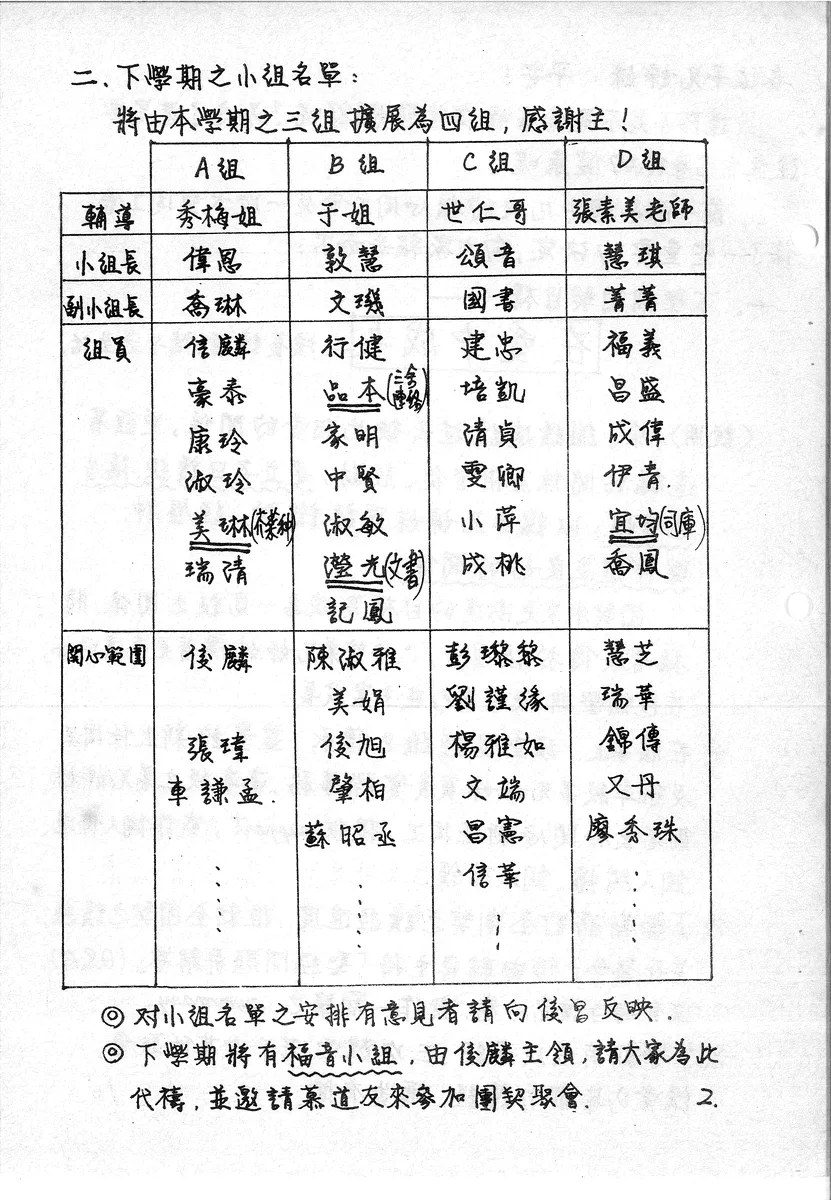 二、下學期之小組名單：
將由本學期之三組擴展為四組，感謝主！
A組 B組 C組 D組
輔導 秀梅姐 于姐 世仁哥 張素美老師
小組長 偉恩 敦慧 頌音 慧琪
副小組長 喬琳 文璣 國書 菁菁
組員 信麟 行健 建忠 福義
豪泰 品本(三合連絡) 培凱 昌盛
康玲 家明 清貞 成偉
淑玲 中賢 雯卿 伊青.
美琳 淑敏 小萍 宜均(司庫)
瑞清 瀅光(文書) 成桃 喬鳳
記鳳
關心範圍 俊麟 陳淑雅 彭璨黎 慧芝
美娟 劉謹緣 瑞華
張瑋 俊旭 楊雅如 錦傳
車謙孟. 肇柏 文端 又丹
蘇昭丞 昌憲 廖秀珠
信華
◎ 对小組名單之安排有意見者請向俊昌反映.
◎ 下學期將有福音小組，由俊麟主領，請大家為此
代禱，並邀請慕道友來參加團契聚會.
2.